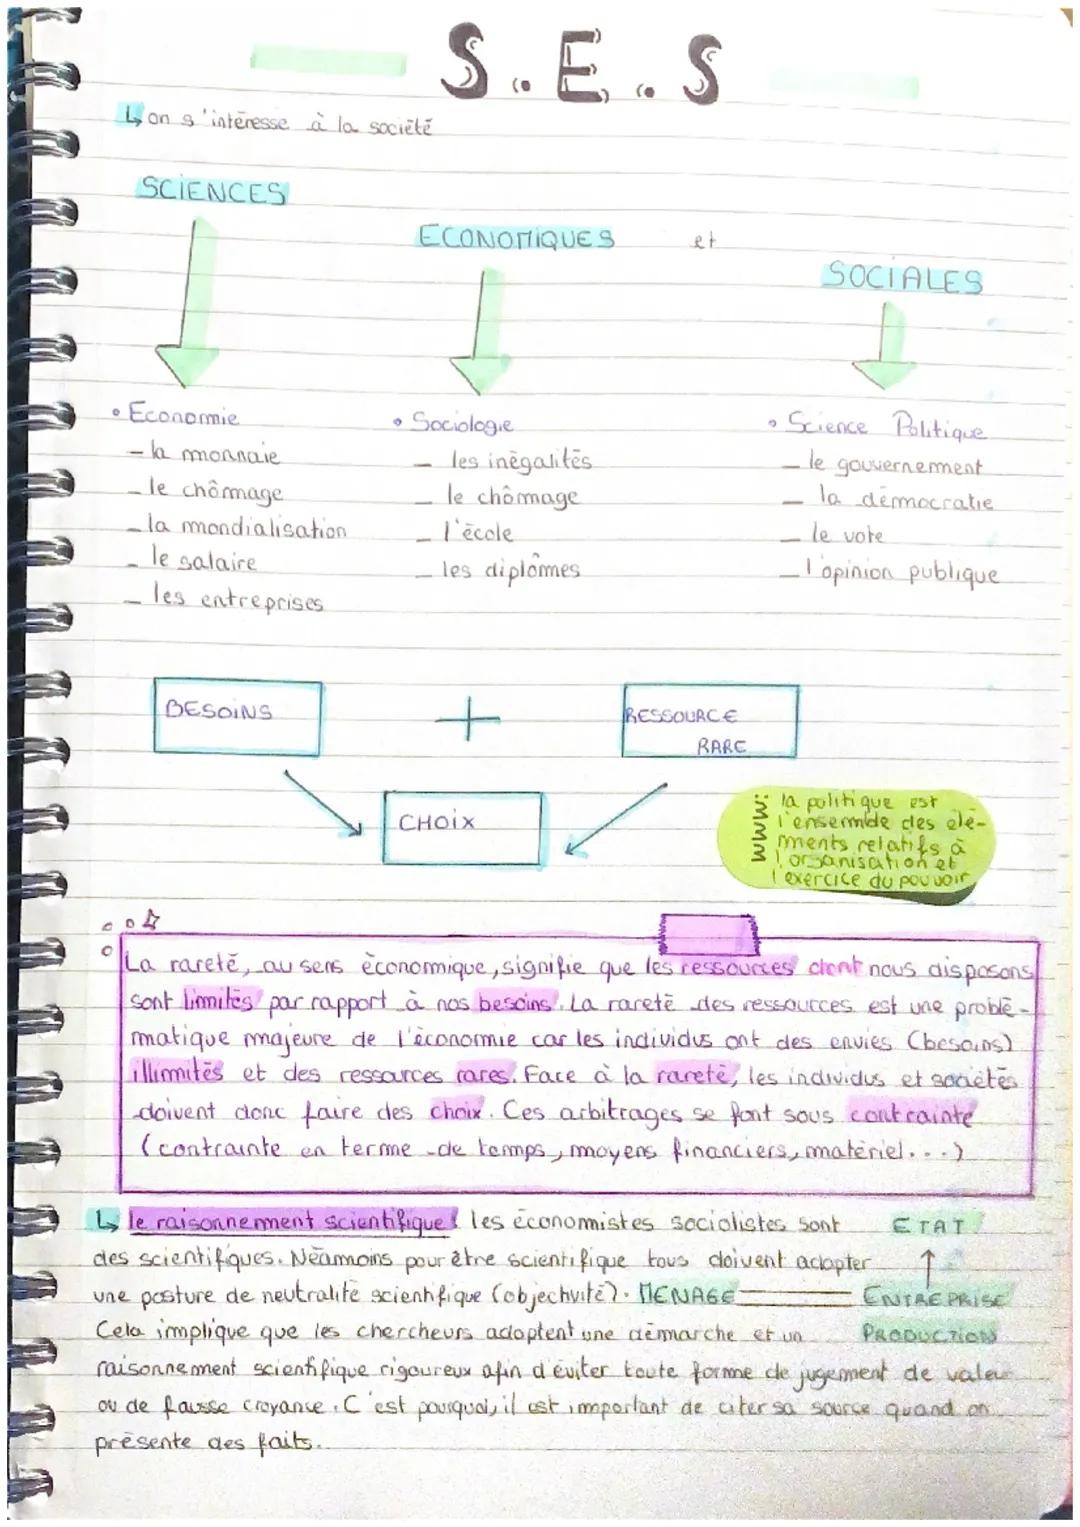 S.E.S
↳ on s'intéresse à la société
SCIENCES
ECONOMIQUES et
SOCIALES
• Economie
- la monnaie
- le chômage
- la mondialisation
- le salaire
- les entreprises
• Sociologie
- les inégalités
- le chômage
- l'école
- les diplômes
• Science Politique
- le gouvernement
- la démocratie
- le vote
- l'opinion publique
BESOINS
+
RESSOURCE
RARE
CHOIX
la politique est
l'ensemble des élé-
ments relatifs à
l'organisation et
l'exercice du pouvoir
La rareté, au sens économique, signifie que les ressources dont nous disposons
sont limités par rapport à nos besoins. La rareté des ressources est une problé-
matique majeure de l'économie car les individus ont des envies (besoins)
illimités et des ressources rares. Face à la rareté, les individus et sociétés
doivent donc faire des choix. Ces arbitrages se font sous contrainte
(contrainte en terme de temps, moyens financiers, matériel...)
↳ le raisonnement scientifique : les économistes sociolistes sont
des scientifiques. Néamoins pour être scientifique tous doivent adopter
une posture de neutralité scientifique (objectivité).
Cela implique que les chercheurs adoptent une démarche et un
raisonnement scientifique rigoureux afin d'éviter toute forme de jugement de valeur
ou de fausse croyance. C'est pourquoi, il est important de citer sa source quand on
présente des faits.
ETAT
↑
MENAGE
ENTREPRISE
PRODUCTION